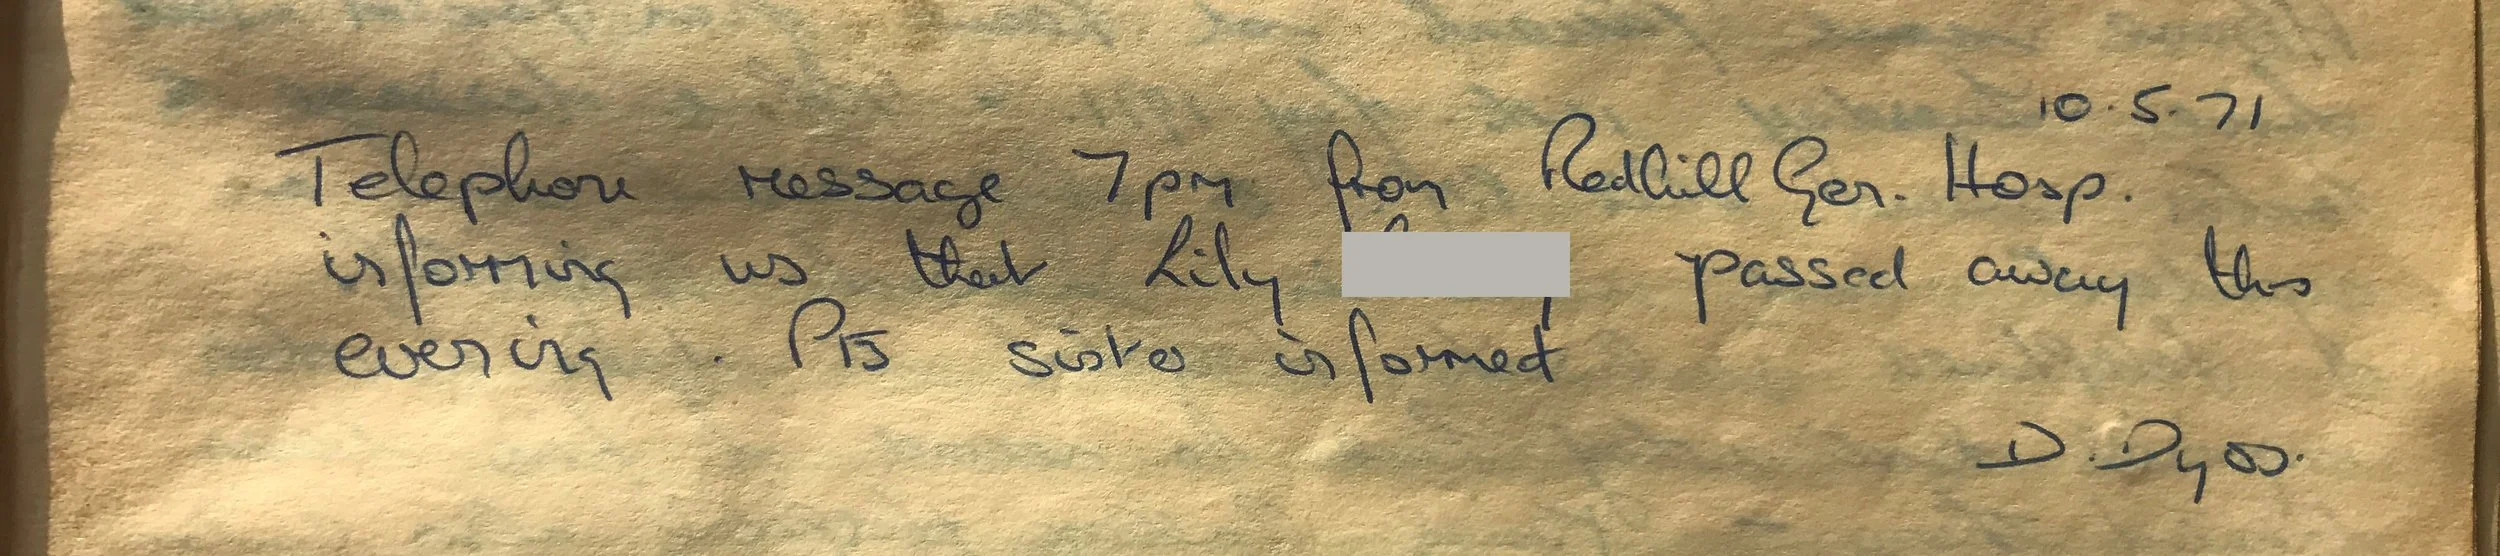 10.5.71
Telephone message 7pm from Redhill Gen. Hosp.
informing us that Lily passed away this
evening. Pts sister informed
D. Dyos.